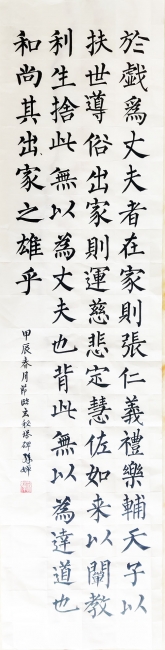 於戯為丈夫者在家則張仁義禮樂輔天子以
扶世導俗出家則運慈悲定慧佐如来以闡教
利生捨此無以為丈夫也背此無以為達道也
和尚其出家之雄乎
甲辰春月節臨玄秘塔碑